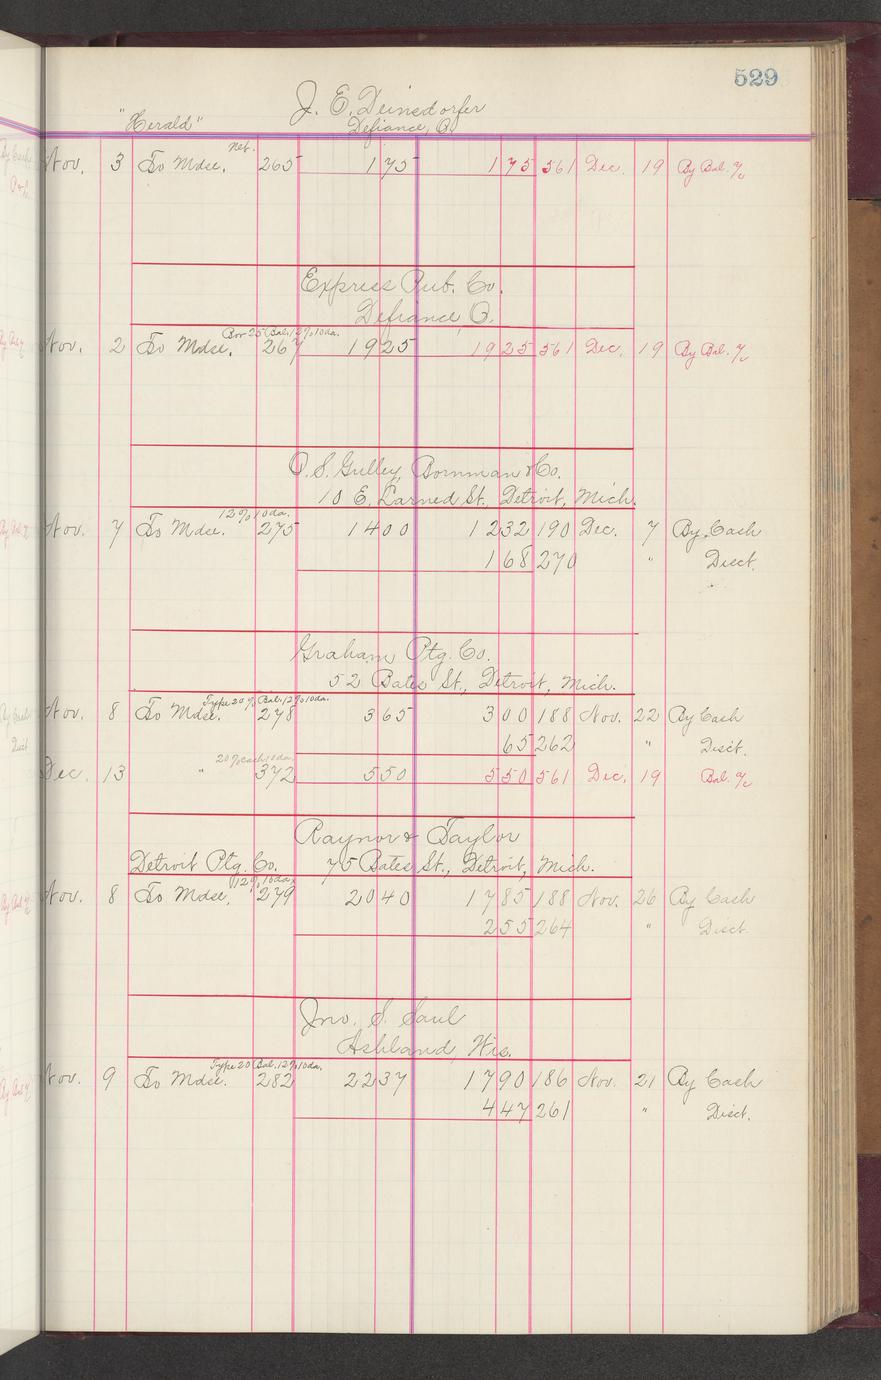 529
J. E. Deinsdorfer
"Herald" Defiance, O.
net.
Nov. 3 To Mdse. 265 1 75 1 75 561 Dec. 19 By Bal. a/c
Express Pub. Co.
Defiance O.
Bor 25 Bal. 12% 10 da.
Nov. 2 To Mdse. 267 19 25 19 25 561 Dec. 19 By Bal. a/c
O. S. Gulley, Bornman & Co.
10 E. Larned St., Detroit, Mich.
12% 10 da.
Nov. 7 To Mdse. 275 14 00 12 32 190 Dec. 7 By Cash
1 68 270 " Disct.
Graham Ptg. Co.
52 Bates St., Detroit, Mich.
Type 20% Bal. 12% 10 da.
Nov. 8 To Mdse. 278 3 65 3 00 188 Nov. 22 By Cash
65 262 " Disct.
20% cash 10 da.
Dec. 13 " 372 5 50 5 50 561 Dec. 19 Bal. a/c
Raynor & Taylor
Detroit Ptg. Co. 75 Bates St., Detroit, Mich.
12% 10 da.
Nov. 8 To Mdse. 279 20 40 17 85 188 Nov. 26 By Cash
2 55 264 " Disct.
Jno. S. Saul
Ashland, Wis.
Type 20 Bal. 12% 10 da.
Nov. 9 To Mdse. 282 22 37 17 90 186 Nov. 21 By Cash
4 47 261 " Disct.